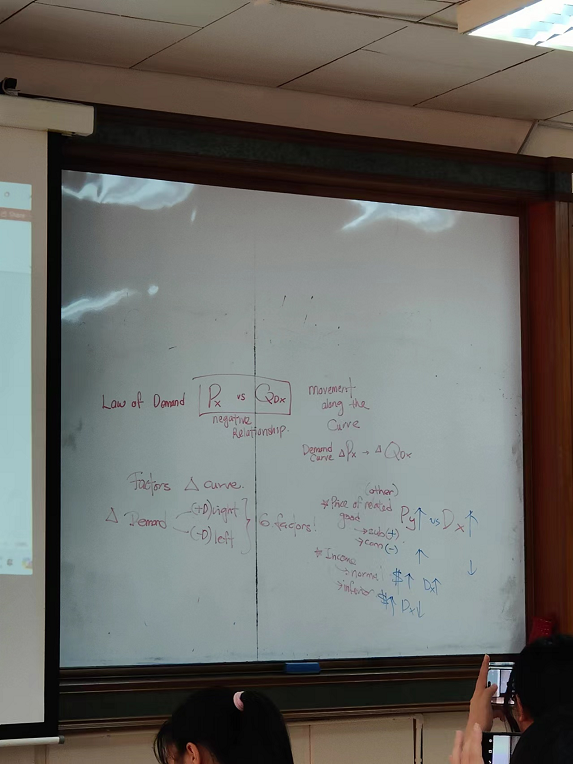 Law of Demand Px vs QDx
negative
Relationship.
Movement
along the
Curve
Demand
Curve Δ Px → Δ QDx
Factors Δ curve.
Δ Demand → (+D) right
→ (-D) left
6 factors!
(other)
* Price of related
good Py ↑ vs Dx ↑
→ sub (+)
→ com (-) ↑ ↓
* Income
→ normal $↑ Dx↑
→ inferior $↑ Dx↓